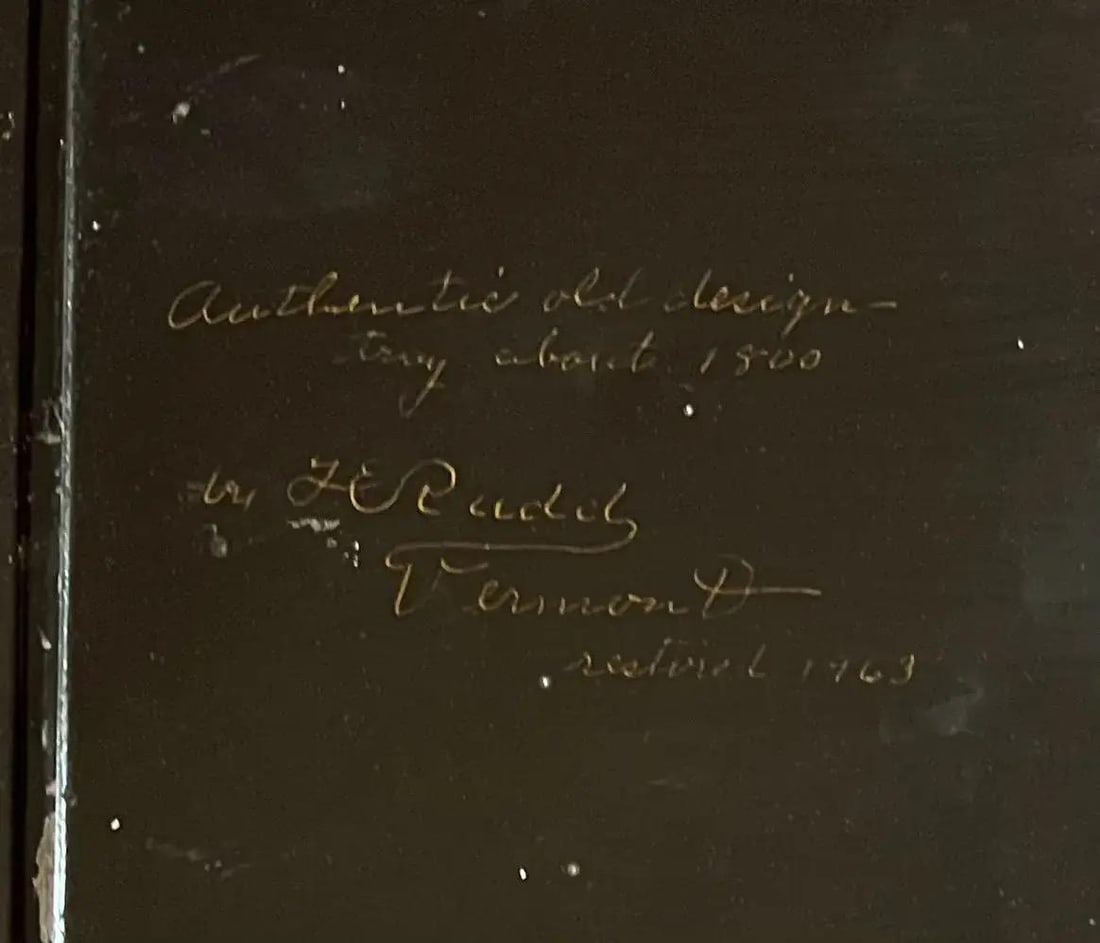 Authentic old design—
tray about 1800
by F E Rudd
Vermont
restored 1963